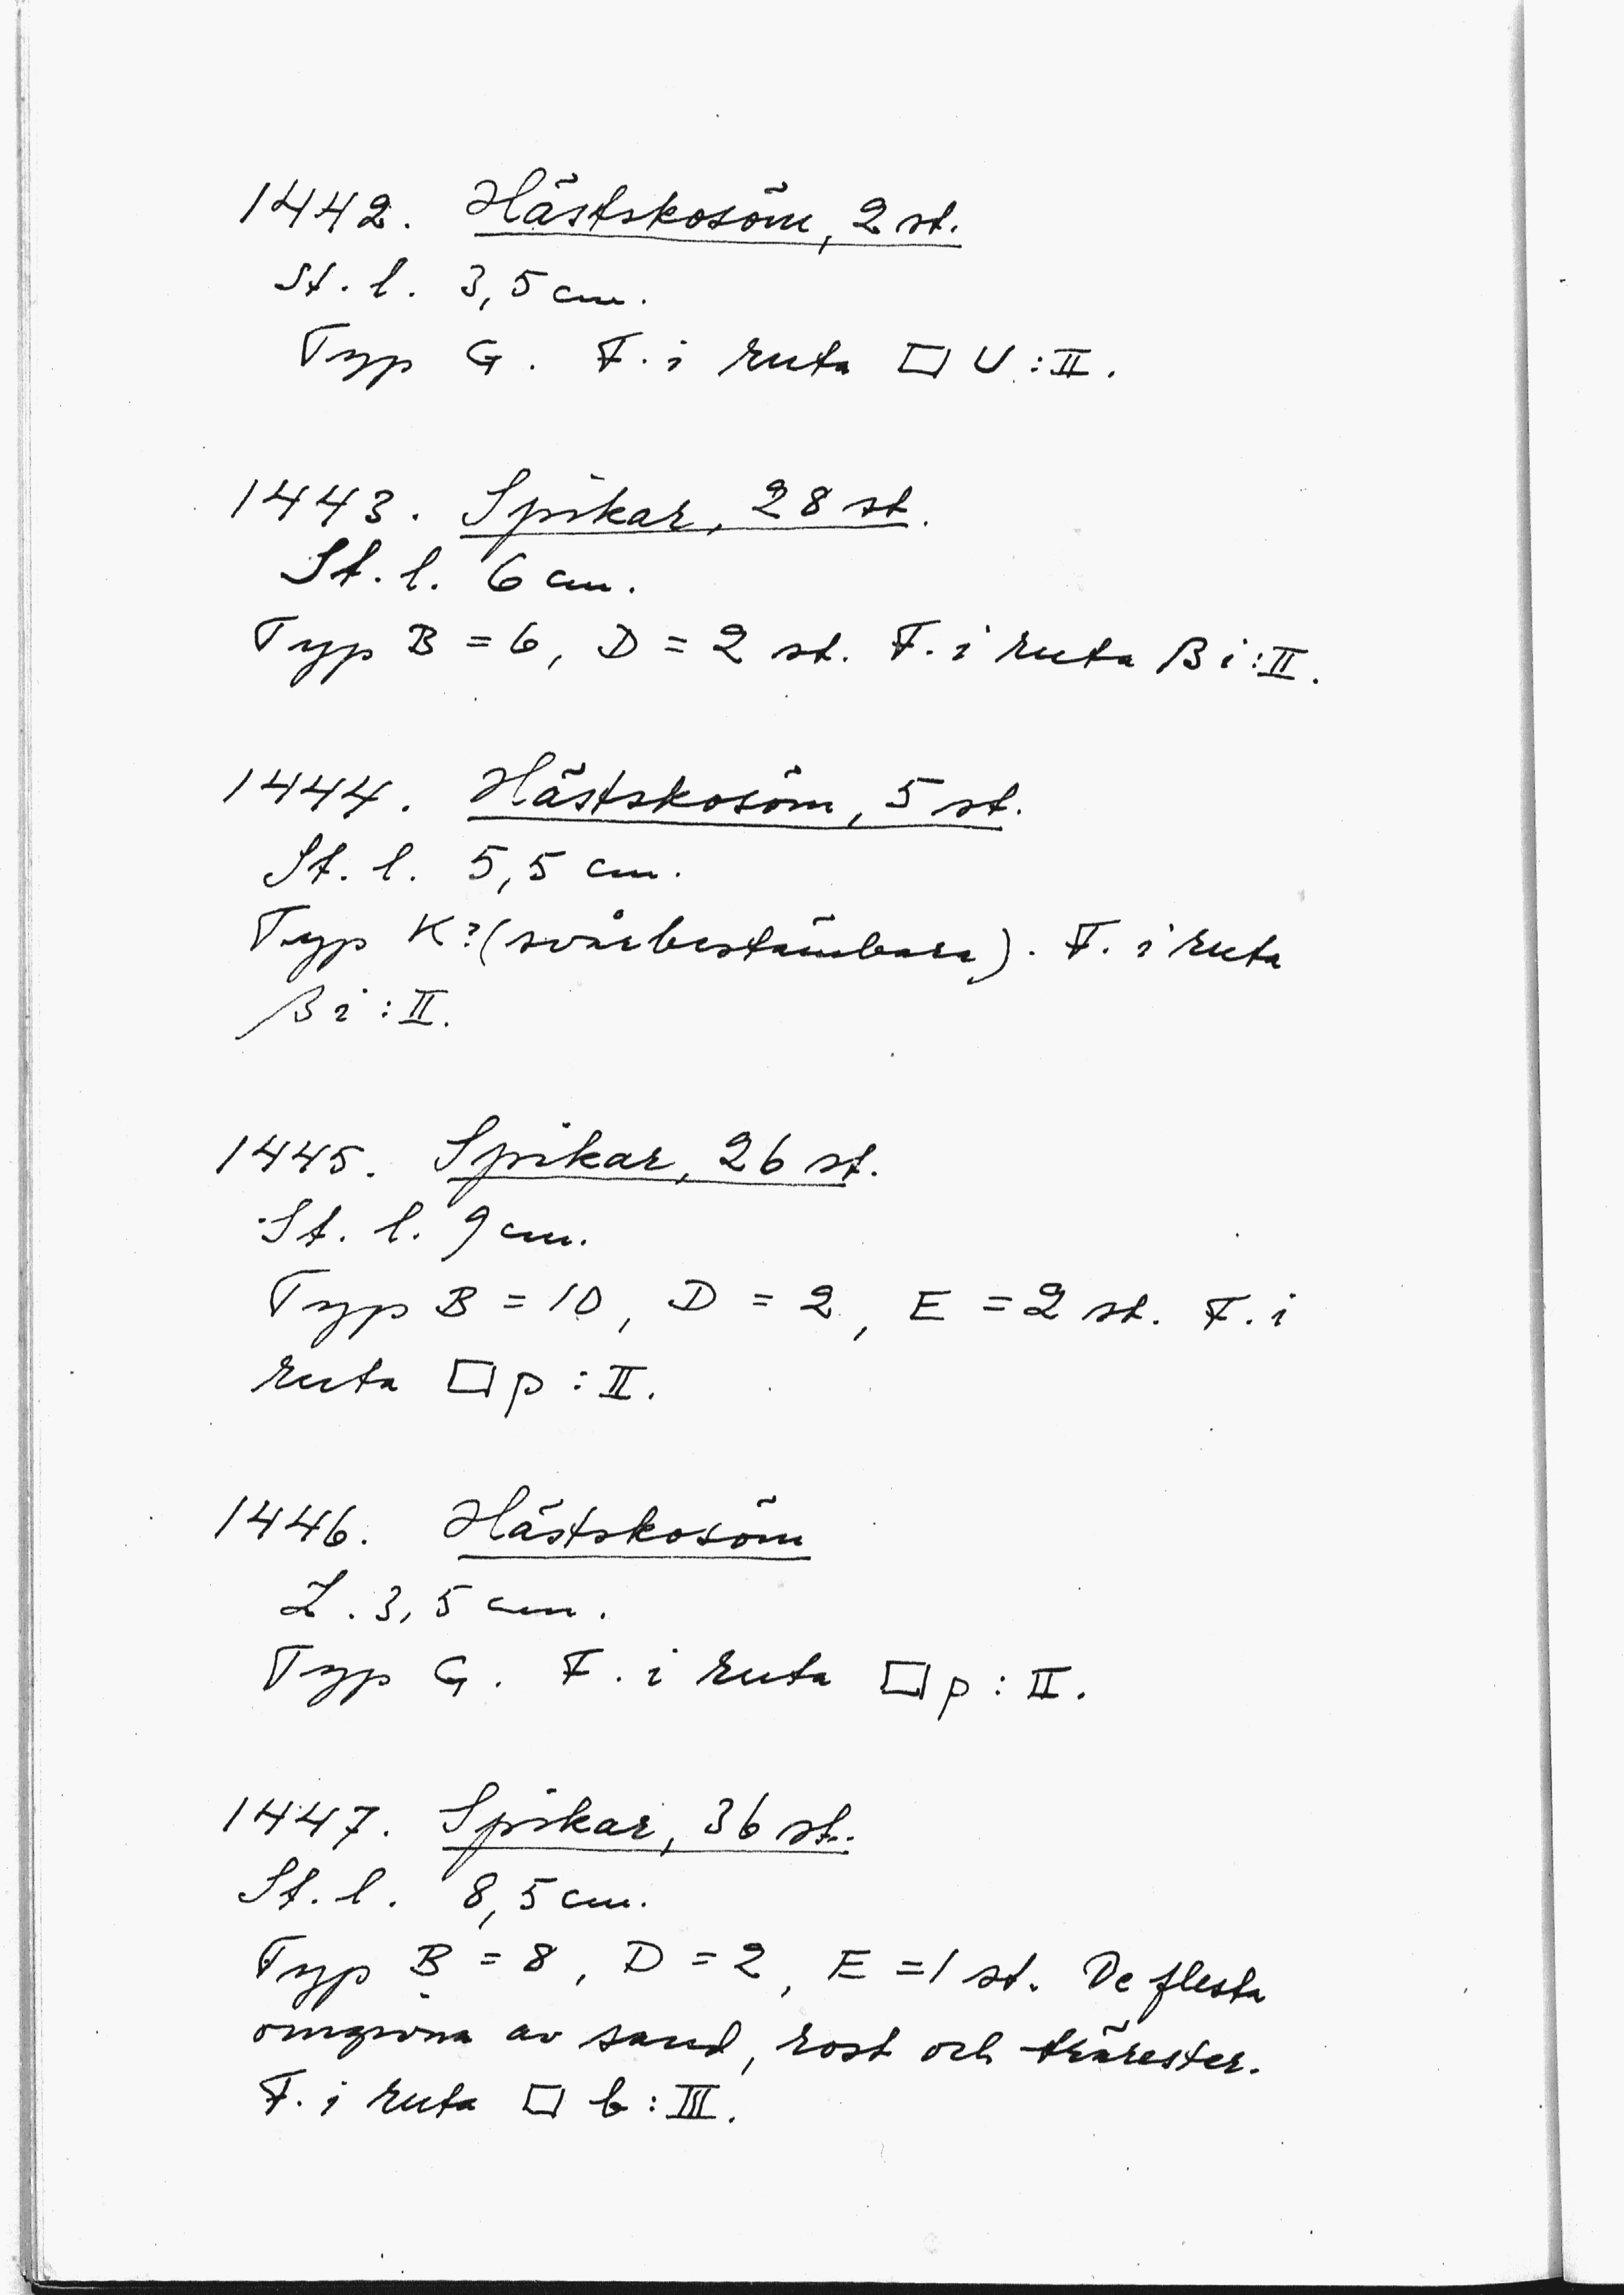 1442. Hästskosöm, 2 st.
St. l. 3,5 cm.
Typ G. F. i ruta □ U : II.
1443. Spikar, 28 st.
St. l. 6 cm.
Typ B = 6, D = 2 st. F. i ruta β i : II.
1444. Hästskosöm, 5 st.
St. l. 5,5 cm.
Typ K? (svårbestämbara). F. i ruta
β i : II.
1445. Spikar, 26 st.
St. l. 9 cm.
Typ B = 10, D = 2, E = 2 st. F. i
ruta □ p : II.
1446. Hästskosöm
L. 3,5 cm.
Typ G. F. i ruta □ p : II.
1447. Spikar, 36 st.
St. l. 8,5 cm.
Typ B = 8, D = 2, E = 1 st. De flesta
omgivna av sand, rost och trärester.
F. i ruta □ b : III.